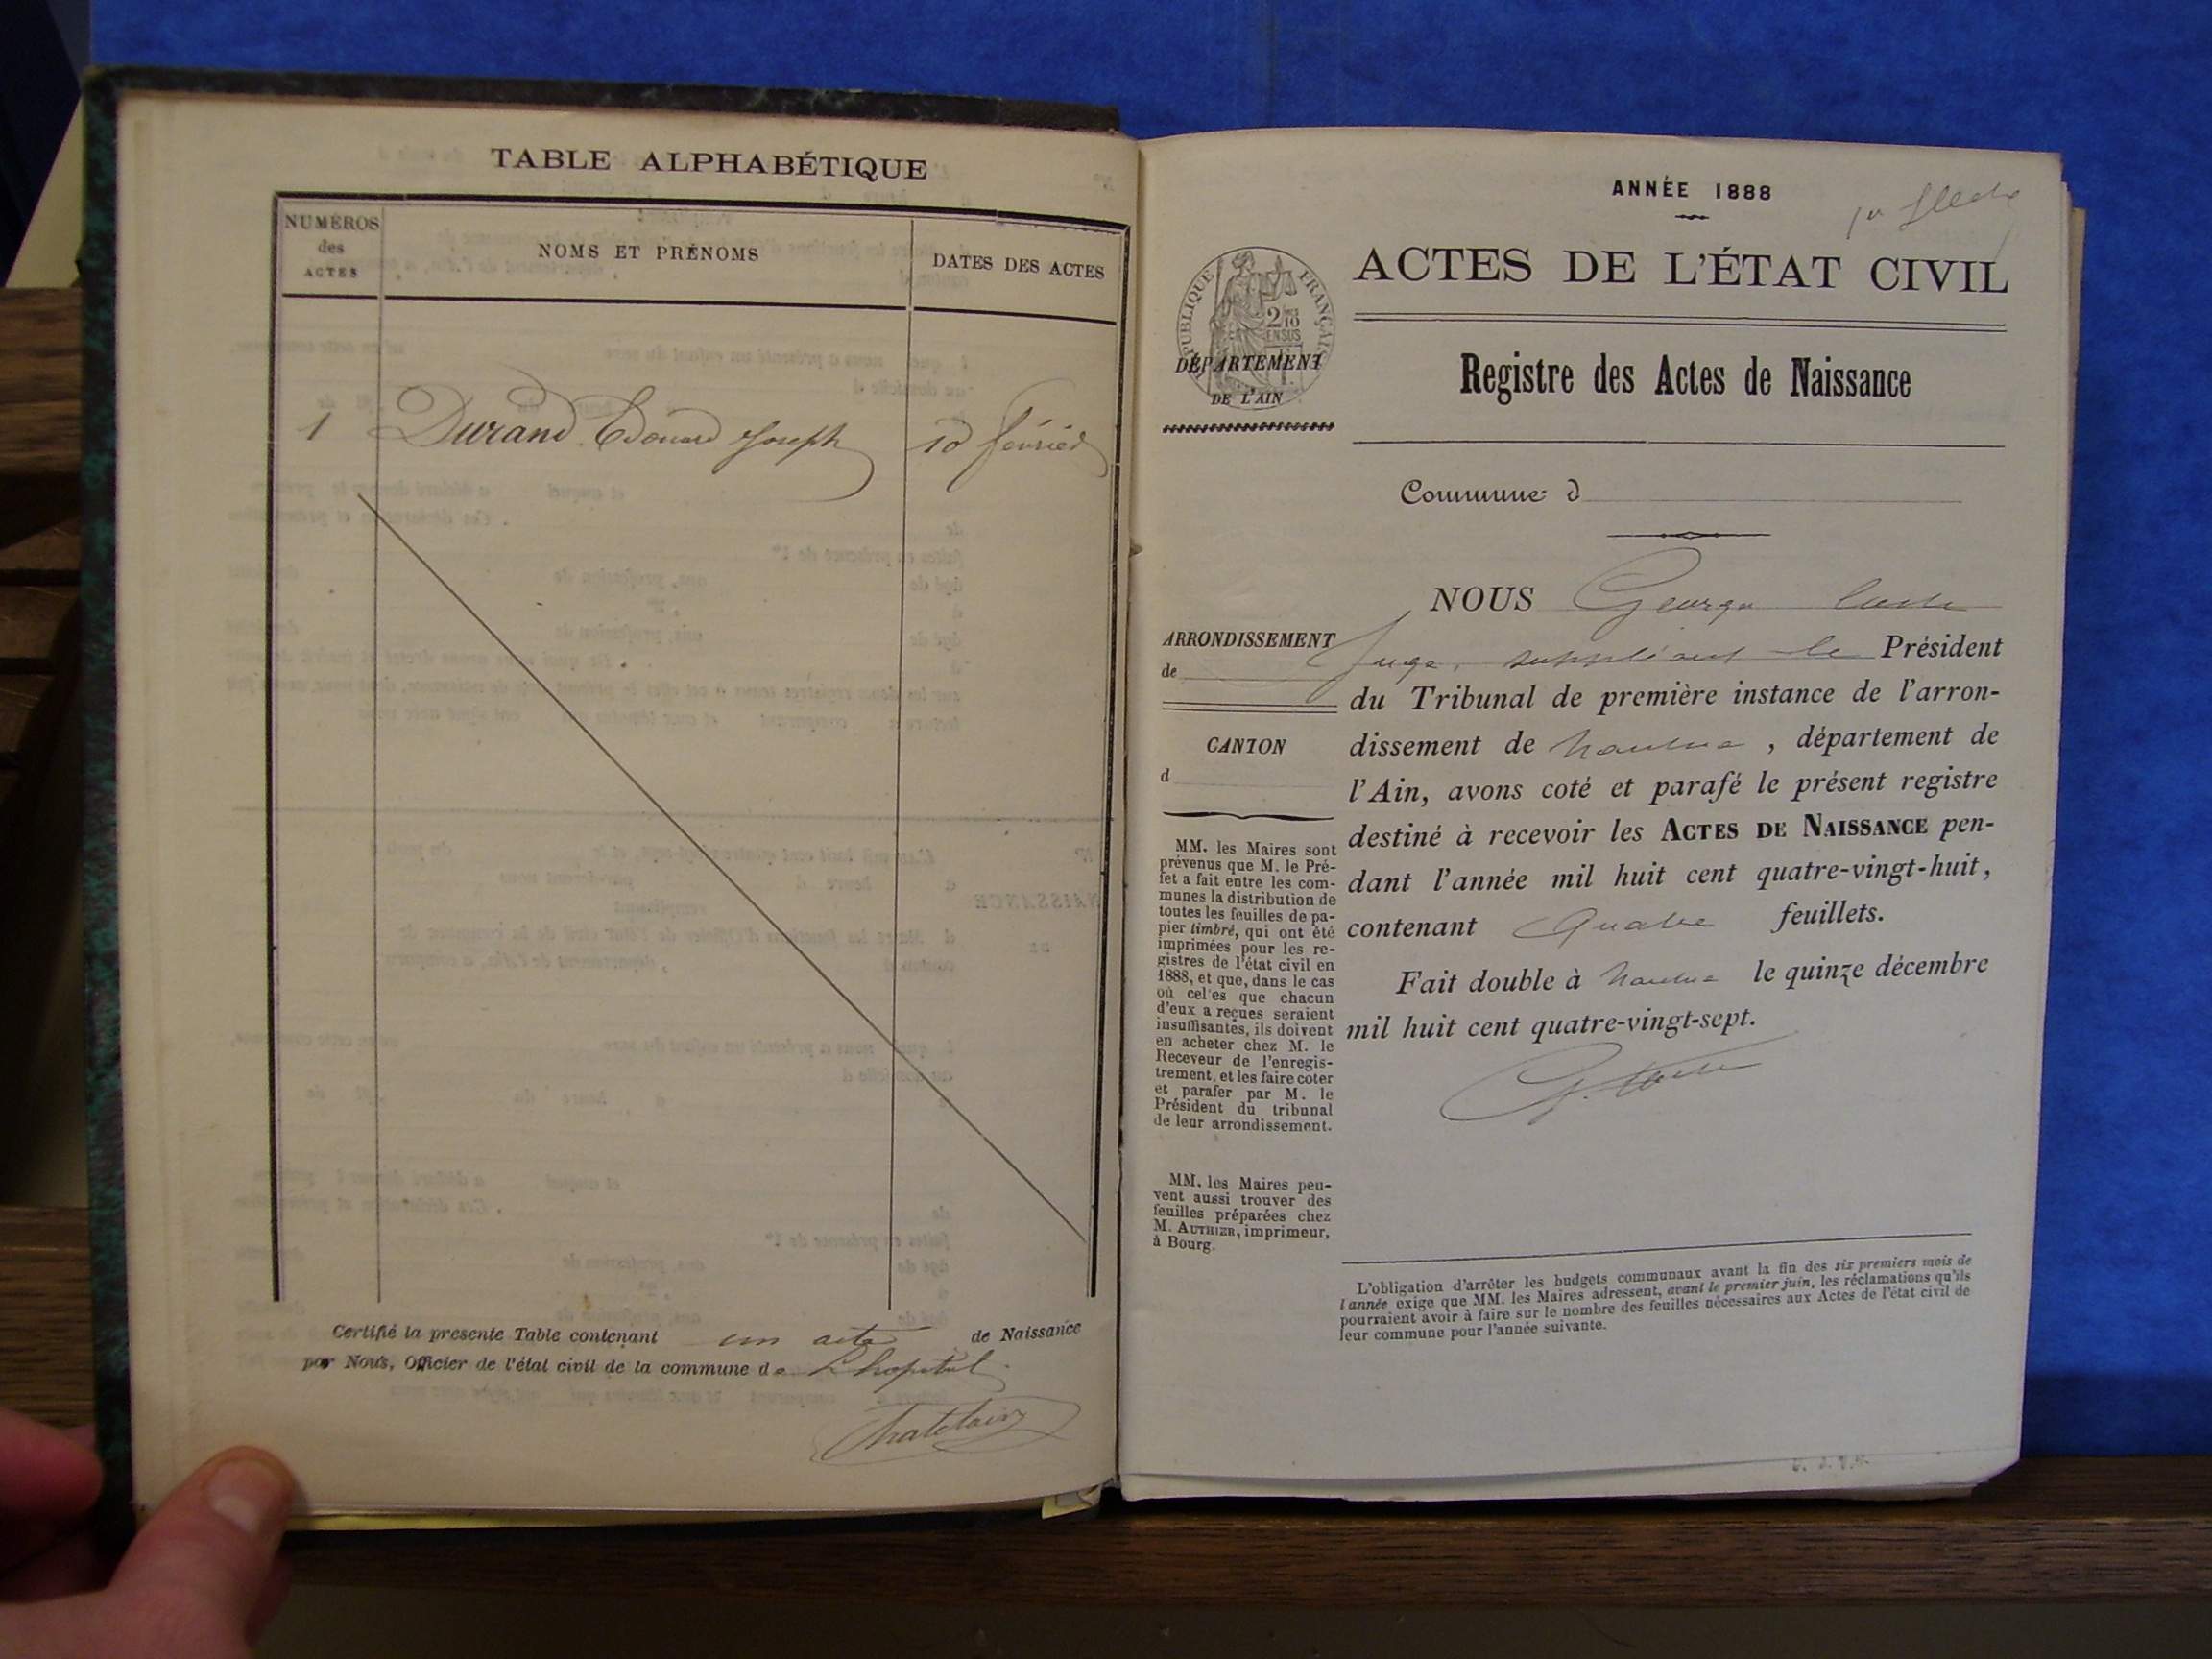 TABLE ALPHABÉTIQUE
NUMÉROS
des
ACTES
NOMS ET PRÉNOMS
DATES DES ACTES
1 Durand Edouard Joseph 10 février
Certifié la presente Table contenant un acte de Naissance
par Nous, Officier de l'état civil de la commune de L'hopital
Chatelain
ANNÉE 1888
ACTES DE L'ÉTAT CIVIL
RÉPUBLIQUE FRANÇAISE
DÉPARTEMENT
DE L'AIN
Registre des Actes de Naissance
Commune d
ARRONDISSEMENT
de
CANTON
d
MM. les Maires sont
prévenus que M. le Pré-
fet a fait entre les com-
munes la distribution de
toutes les feuilles de pa-
pier timbré, qui ont été
imprimées pour les re-
gistres de l'état civil en
1888, et que, dans le cas
où celles que chacun
d'eux a reçues seraient
insuffisantes, ils doivent
en acheter chez M. le
Receveur de l'enregis-
trement, et les faire coter
et parafer par M. le
Président du tribunal
de leur arrondissement.
MM. les Maires peu-
vent aussi trouver des
feuilles préparées chez
M. AUTHIER, imprimeur,
à Bourg.
NOUS George
Juge suppléant le Président
du Tribunal de première instance de l'arron-
dissement de Nantua, département de
l'Ain, avons coté et parafé le présent registre
destiné à recevoir les ACTES DE NAISSANCE pen-
dant l'année mil huit cent quatre-vingt-huit,
contenant Quatre feuillets.
Fait double à Nantua le quinze décembre
mil huit cent quatre-vingt-sept.
L'obligation d'arrêter les budgets communaux avant la fin des six premiers mois de
l'année exige que MM. les Maires adressent, avant le premier juin, les réclamations qu'ils
pourraient avoir à faire sur le nombre des feuilles nécessaires aux Actes de l'état civil de
leur commune pour l'année suivante.